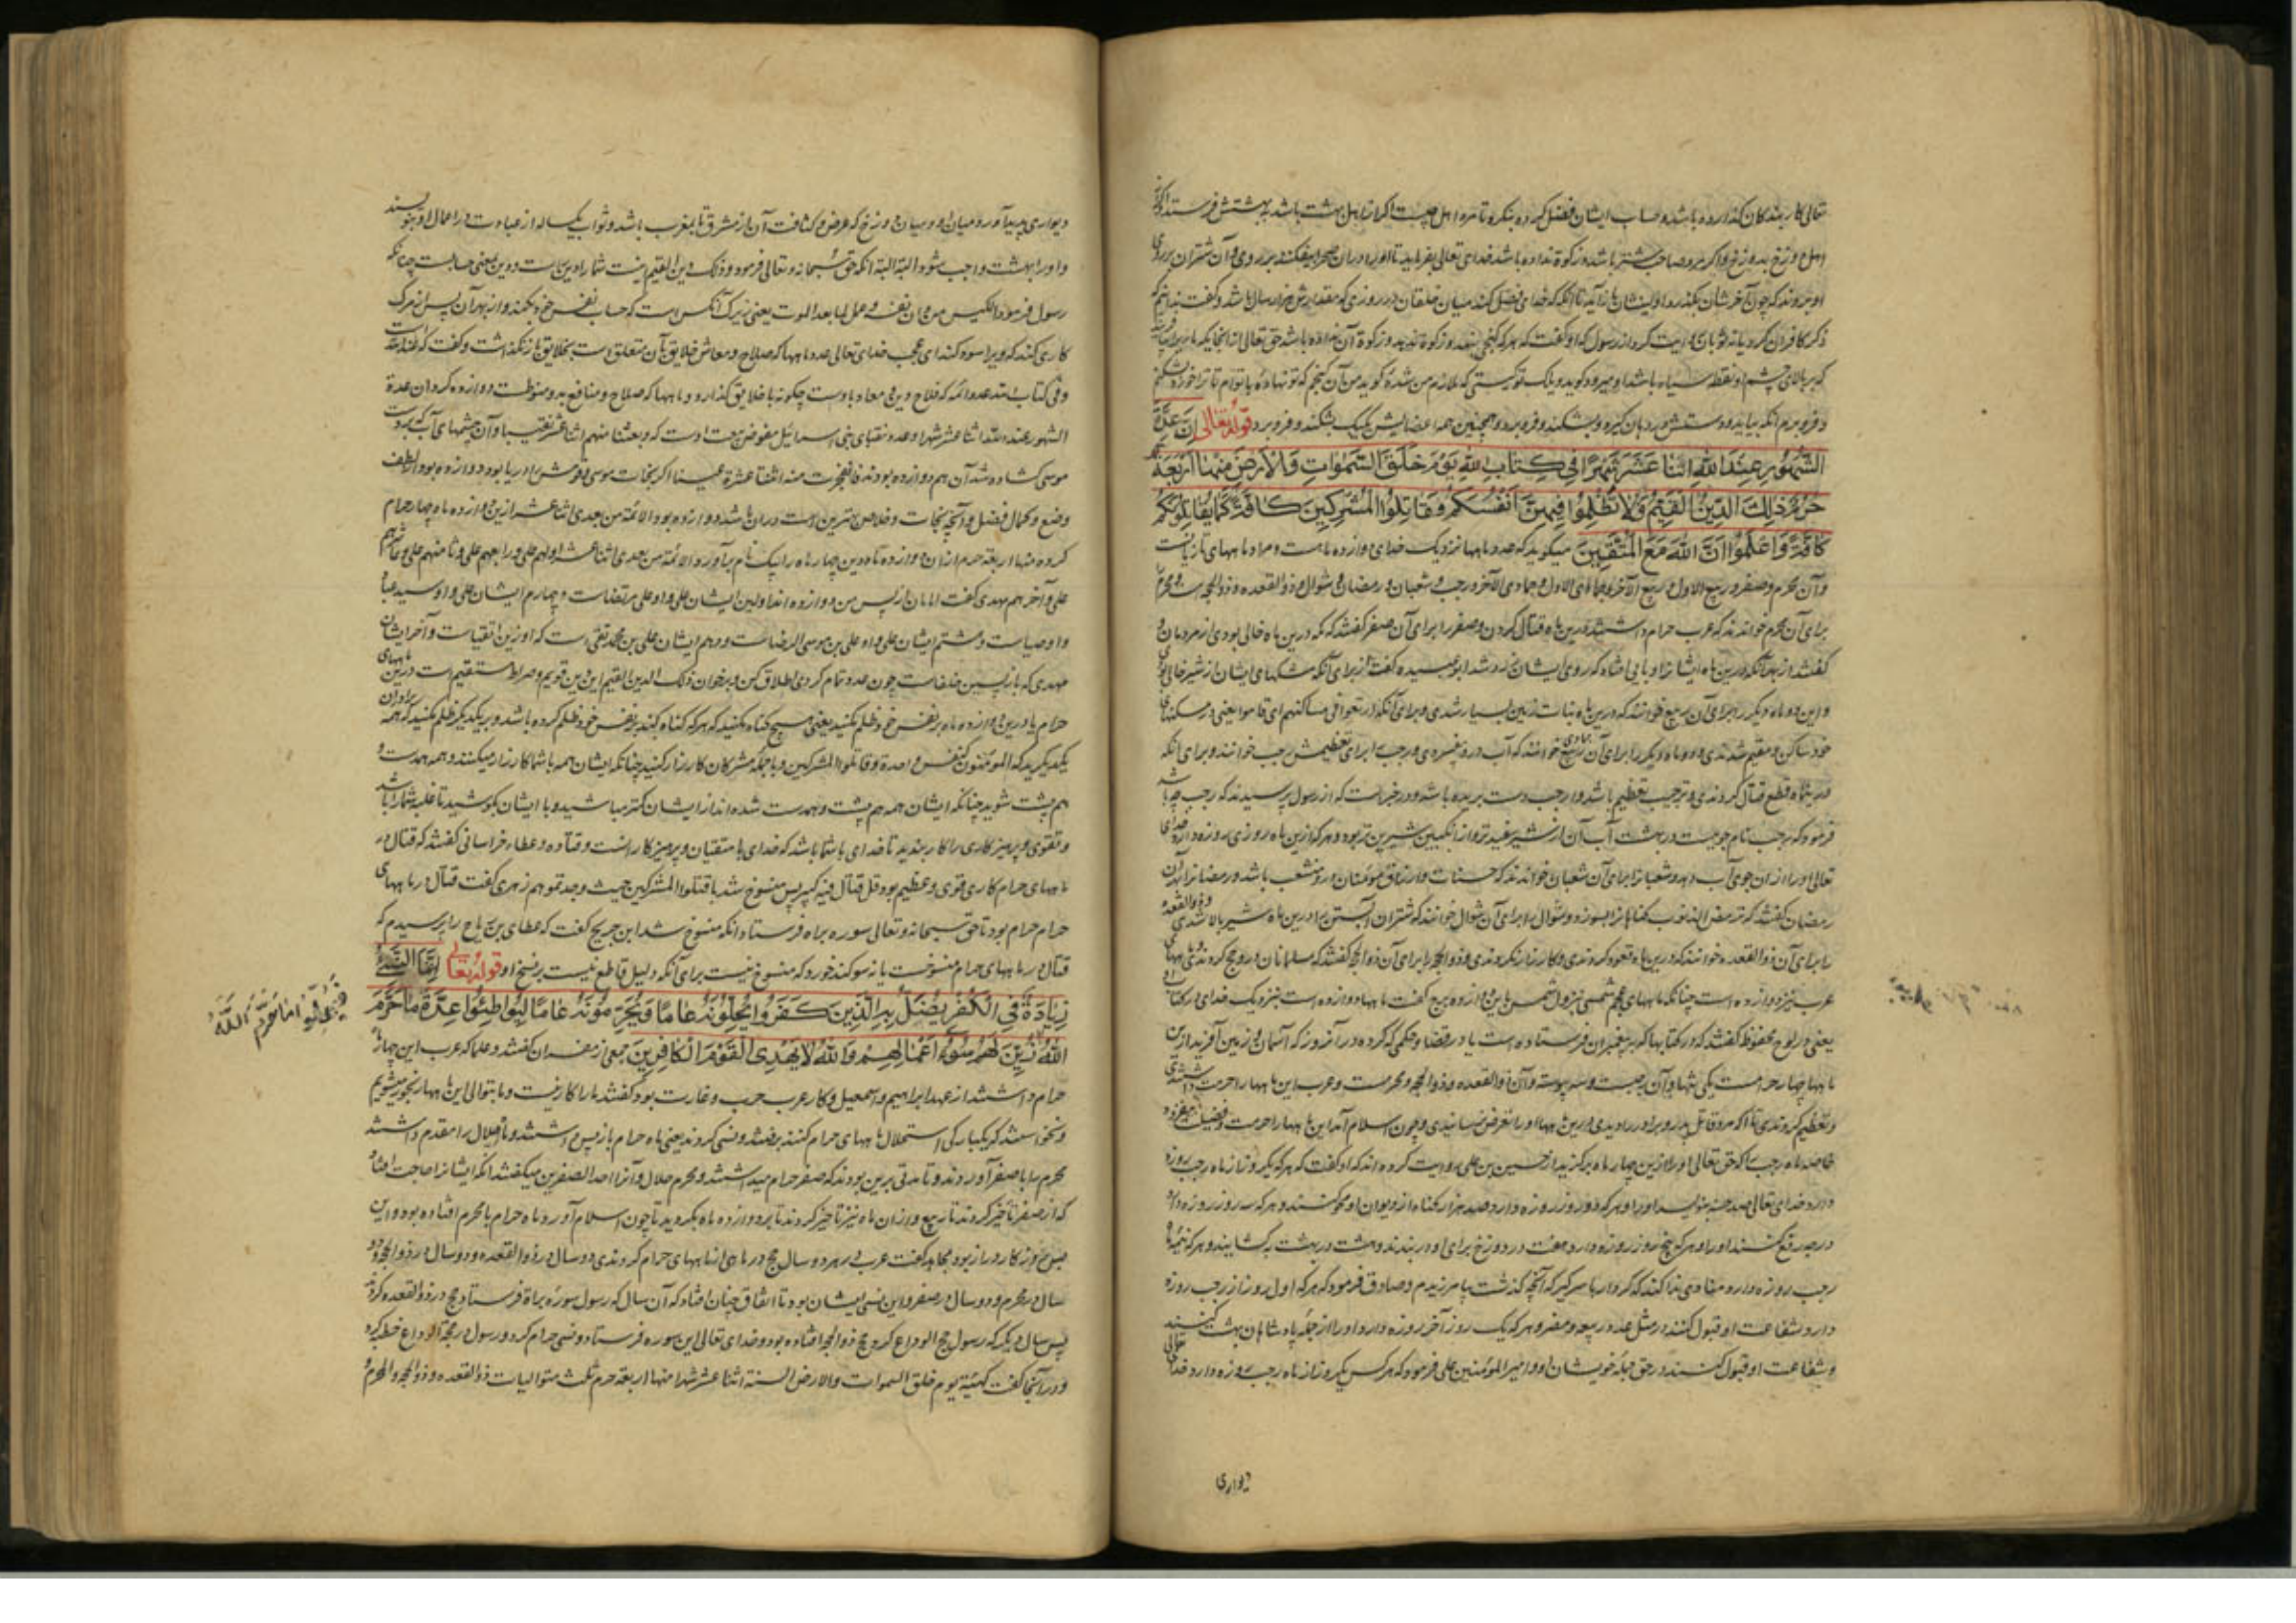 تعالی کار بندکان کذارده باشد و حساب ایشان فضل کرده بنکرد تا مزد اهل چیست اکر از اهل بهشت باشد به بهشتش فرستد و اکر از
اهل دوزخ بدوزخ و اکر مرد صاحب شتر باشد و زکوة نداده باشد خدای تعالی بفرماید تا او را در آن صحرا بیفکنند بر روی و آن شتران بر روی
او میروند که چون آخرشان بکذرد اولیشان باز آید تا آنکه که خدا فصل کند میان خلقان در روزی که مقدارش هزار سال باشد و کفت ندانم که
ذکر کاو کرد یا نه ثوبان روایت کرد از رسول که او کفت که هرکه کنجی بنهد و زکوة ندهد و زکوة آن نداده باشد حق تعالی از انجا یکی مار برا
که بر بالای چشم او نقطه سیاه باشد او میرود کوید ویلک تو کیستی که ملازم من شدۀ کوید من آن کنجم که تو نهادۀ با توام تا ترا خورد بشکنم
و فرو برم آنکه بیاید و دستش در دهان کیرد و بشکند و فرو برد و همچنین همه اعضایش یکیک بشکند و فرو برد قوله تعالی اِنَّ عِدَّةَ
الشُّهُورِ عِنْدَ اللهِ اثْنَا عَشَرَ شَهْرًا فِی کِتَابِ اللهِ یَوْمَ خَلَقَ السَّمٰوَاتِ وَالْاَرْضَ مِنْهَا اَرْبَعَةٌ
حُرُمٌ ذٰلِكَ الدِّینُ الْقَیِّمُ فَلَا تَظْلِمُوا فِیهِنَّ اَنْفُسَکُمْ وَقَاتِلُوا الْمُشْرِکِینَ کَافَّةً کَمَا یُقَاتِلُونَکُمْ
کَافَّةً وَاعْلَمُوا اَنَّ اللهَ مَعَ الْمُتَّقِینَ میکوید که عدد ماهها نزدیک خدای دوازده ماهست و مراد ماههای تازیانست
و آن محرم و صفر و ربیع الاول و ربیع الآخر و جمادی الاول و جمادی الآخر و رجب و شعبان و رمضان و شوال و ذو القعده و ذو الحجه است و محرم
برای آن محرم خواندند که عرب حرام داشتندی درین ماه قتال کردن و صفر را برای آن صفر کفتند که مکه درین ماه خالی بودی از مردمان و
کفتند از بهر آنکه درین ماه ایشانرا وبایی افتاد که روی ایشان زرد شد ابو عبیده کفت از برای آنکه مشکهای ایشان از شیر خالی بودی
و این دو ماه دیکر را برای آن ربیع خوانند که درین ماه نبات زمین بسیار شدی و برای آنکه ارتبعوا فی مساکنهم ای قاموا یعنی در مسکنهای
خود ساکن و مقیم شدندی و دو ماه دیکر را برای آن جمادی خوانند که آب درو بفسردی و رجب را برای تعظیمش رجب خوانند و برای آنکه
درین ماه قطع قتال کردندی و ترجیب تعظیم باشد و ارجب دست بریده باشد و در خبر است که از رسول پرسیدند که رجب چه باشد
فرمود که رجب نام جویست در بهشت آب آن از شیر سفیدتر و از انکبین شیرین تر بود و هرکه ازین ماه روزی روزه دارد خدای
تعالی او را از آن جوی آب دهد و شعبانرا برای آن شعبان خواندند که حسنات و ارزاق مؤمنان درو منشعب باشد و رمضانرا از آن
رمضان کفتند که ترمض الذنوب کناهانرا بسوزد و شوال را برای آن شوال خوانند که شتران آبستن را درین ماه شیر بالا شدی و ذو القعده
را برای آن ذو القعده خوانند که درین ماه قعود کردندی و کارزار نکردندی و ذو الحجه را برای آن ذو الحجه کفتند که مسلمانان درو حج کردندی ماههای
عرب نیز دوازده است چنانکه ماههای عجم شمسی بنزول شمس باین دوازده برج کفت ماهها دوازده است بنزدیک خدای در کتاب او
یعنی در لوح محفوظ کفتند که در کتابها که بر پیغمبران فرستاده است یا در قضا و حکمی که کرده در آنروز که آسمان و زمین آفرید ازین
ماهها چهار حرامست یکی تنها و آن رجبست و سه پیوسته و آن ذو القعده و ذو الحجه و محرمست و عرب این ماهها را حرمت داشتندی
و تعظیم کردندی تا اکر مرد قاتل پدر و برادر را دیدی درین ماهها او را تعرض نرسانیدی و چون اسلام آمد این ماهها را حرمت و فضیلت بیفزود
خاصه ماه رجب را که حق تعالی او را ازین چهار ماه برکزید از حسین بن علی روایت کرده اند که او کفت که هرکه یکروز از ماه رجب روزه
دارد خدای تعالی صد حسنه بنویسد او را و هرکه دو روز روزه دارد صد هزار کناه از دیوان او محو کنند و هرکه سه روز روزه دارد
درجه رفع کنند او را و هرکه پنج روز روزه دارد هفت در دوزخ برای او در بندند و هشت در بهشت بکشایند و هرکه نیمۀ
رجب روزه دارد منادی ندا کند که کردار با سر کیر که آنچه کذشت بیامرزیدم و صادق فرمود که هرکه اول روز از رجب روزه
دارد شفاعت او قبول کنند در مثل عدد ربیعه و مضر و هرکه یک روز آخر روزه دارد او را از جمله پادشاهان بهشت کنند
و شفاعت او قبول کنند در حق جمله خویشان او و امیر المؤمنین علی فرمود که هرکس یکروز از ماه رجب روزه دارد خدای تعالی
دیواری
دیواری پدید آورد میان او و میان دوزخ که عرض و کثافت آن از مشرق تا بمغرب باشد و ثواب یکساله از عبادت در اعمال او بنویسند
و او را بهشت واجب شود البته البته آنکه حق سبحانه و تعالی فرمود و ذلک دین القیم اینست شمارا دین راست و دین بمعنی حسابست چنانکه
رسول فرمود الکیس من دان نفسه و عمل لما بعد الموت یعنی زیرک آنکس است که حساب نفس خود بکند و از بهر آن پس از مرک
کاری کند که ویرا سود کند ای عجب خدای تعالی عدد ماهها که صلاح و معاش خلایق بآن متعلق است بخلایق باز نکذاشت و کفت که عند الله
و فی کتاب الله عدد ائمه که فلاح دین و معاد باوست چکونه با خلایق کذارد و ماهها که صلاح و منافع بدو منوطست دوازده کرد ان عدة
الشهور عند الله اثنا عشر شهرا و عدد نقبای بنی اسرائیل مفوض بعنایت اوست که و بعثنا منهم اثنا عشر نقیبا و آن چشمهای آب که بر دست
موسی کشاده شد آن هم دوازده بودند فانفجرت منه اثنتا عشرة عینا اکر نجات موسی و قومش را دریا بود دوازده بود از لطف
وضع و کمال فضل و آنچه نجات و خلاص بهترین امت در آن باشد دوازده بود الائمة من بعدی اثنا عشر ازین دوازده ماه چهار حرام
کرد منها اربعة حرم از آن دوازده تا درین چهار ماه را یک نام برآورد الائمة من بعدی اثنا عشر اولهم علی و رابعهم علی و ثامنهم علی و عاشرهم
علی و آخرهم مهدی کفت امامان از پس من دوازده اند اولین ایشان علی و او علی مرتضاست و چهارم ایشان علی و او سید عباد
و اوصیاست و هشتم ایشان علی و او علی بن موسی الرضاست و دهم ایشان علی بن محمد تقی است که او زین اتقیاست و آخر ایشان
مهدی که بازپسین خلفاست چون عدد تمام کردی اطلاق کن و برخوان ذلک الدین القیم این دین قویم و صراط مستقیم است درین ماههای
حرام یا درین دوازده ماه بر نفس خود ظلم مکنید یعنی هیچ کناه مکنید که هرکه کناه کند بر نفس خود ظلم کرده باشد و بر یکدیکر ظلم مکنید که همه برادران
یکدیکرید که المؤمنون کنفس واحدة و قاتلوا المشرکین و با جمله مشرکان کارزار کنید چنانکه ایشان همه با شما کارزار میکنند و همه همدست و
هم پشت شوید چنانکه ایشان همه هم پشت و همدست شده اند از ایشان کمتر مباشید و با ایشان بکوشید تا غلبه شمارا باشد
و تقوی و پرهیزکاری را کار بندید تا خدای با شما باشد که خدای با متقیان و پرهیزکارانست و قتاده و عطاء خراسانی کفتند که قتال در
ماههای حرام کاری قوی و عظیم بود قل قتال فیه کبیر پس منسوخ شد باقتلوا المشرکین حیث وجدتموهم زهری کفت قتال در ماههای
حرام حرام بود تا حق سبحانه و تعالی سوره براه فرستاد آنکه منسوخ شد ابن جریج کفت که عطای بن رباح را پرسیدم که
قتال در ماههای حرام منسوخست یا نه سوکند خورد که منسوخ نیست برای آنکه دلیل قاطع نیست بر نسخ او قوله تعالی اِنَّمَا النَّسِیءُ
زِیَادَةٌ فِی الْکُفْرِ یُضَلُّ بِهِ الَّذِینَ کَفَرُوا یُحِلُّونَهُ عَامًا وَیُحَرِّمُونَهُ عَامًا لِیُوَاطِئُوا عِدَّةَ مَا حَرَّمَ
فَیُحِلُّوا مَا حَرَّمَ اللهُ
اللهُ زُیِّنَ لَهُمْ سُوءُ اَعْمَالِهِمْ وَاللهُ لَا یَهْدِی الْقَوْمَ الْکَافِرِینَ جمعی از مفسران کفتند و علما که عرب این چهار ماه
حرام داشتند از عهد ابراهیم و اسمعیل و کار عرب حرب و غارت بود کفتند ما را کار نیست و ما بتوالی این ماهها رنجور میشویم
و نخواستند که یکبارکی استحلال ماههای حرام کنند برفتند و نسی کردند یعنی ماه حرام باز پس داشتند و ماه حلال را مقدم داشتند
محرم را با صفر آوردند و تا مدتی برین بودند که صفر حرام میداشتند و محرم حلال و آنرا احد الصفرین میکفتند آنکه ایشانرا حاجت افتاد
که از صفر تأخیر کردند تا ربیع و از آن ماه نیز تأخیر کردند تا بر دوازده ماه بکردید تا چون اسلام آورد ماه حرام با محرم افتاده بود و این
پس از روزکار دراز بود مجاهد کفت عرب در هر دو سال حج در ماهی از ماههای حرام کردندی دو سال در ذو القعده و دو سال در ذو الحجه و دو
سال در محرم و دو سال در صفر و این نسی ایشان بود تا اتفاق چنان افتاد که آن سال که رسول سوره براة فرستاد حج در ذو القعده کردند
پس سال دیکر که رسول حج الوداع کرد حج ذو الحجه افتاده بود و خدای تعالی این سوره فرستاد و نسی حرام کرد و رسول در حجة الوداع خطبه کرد
و در آنجا کفت کهیئة یوم خلق السموات والارض السنة اثنا عشر شهرا منها اربعة حرم ثلث متوالیات ذو القعده و ذو الحجه و المحرم